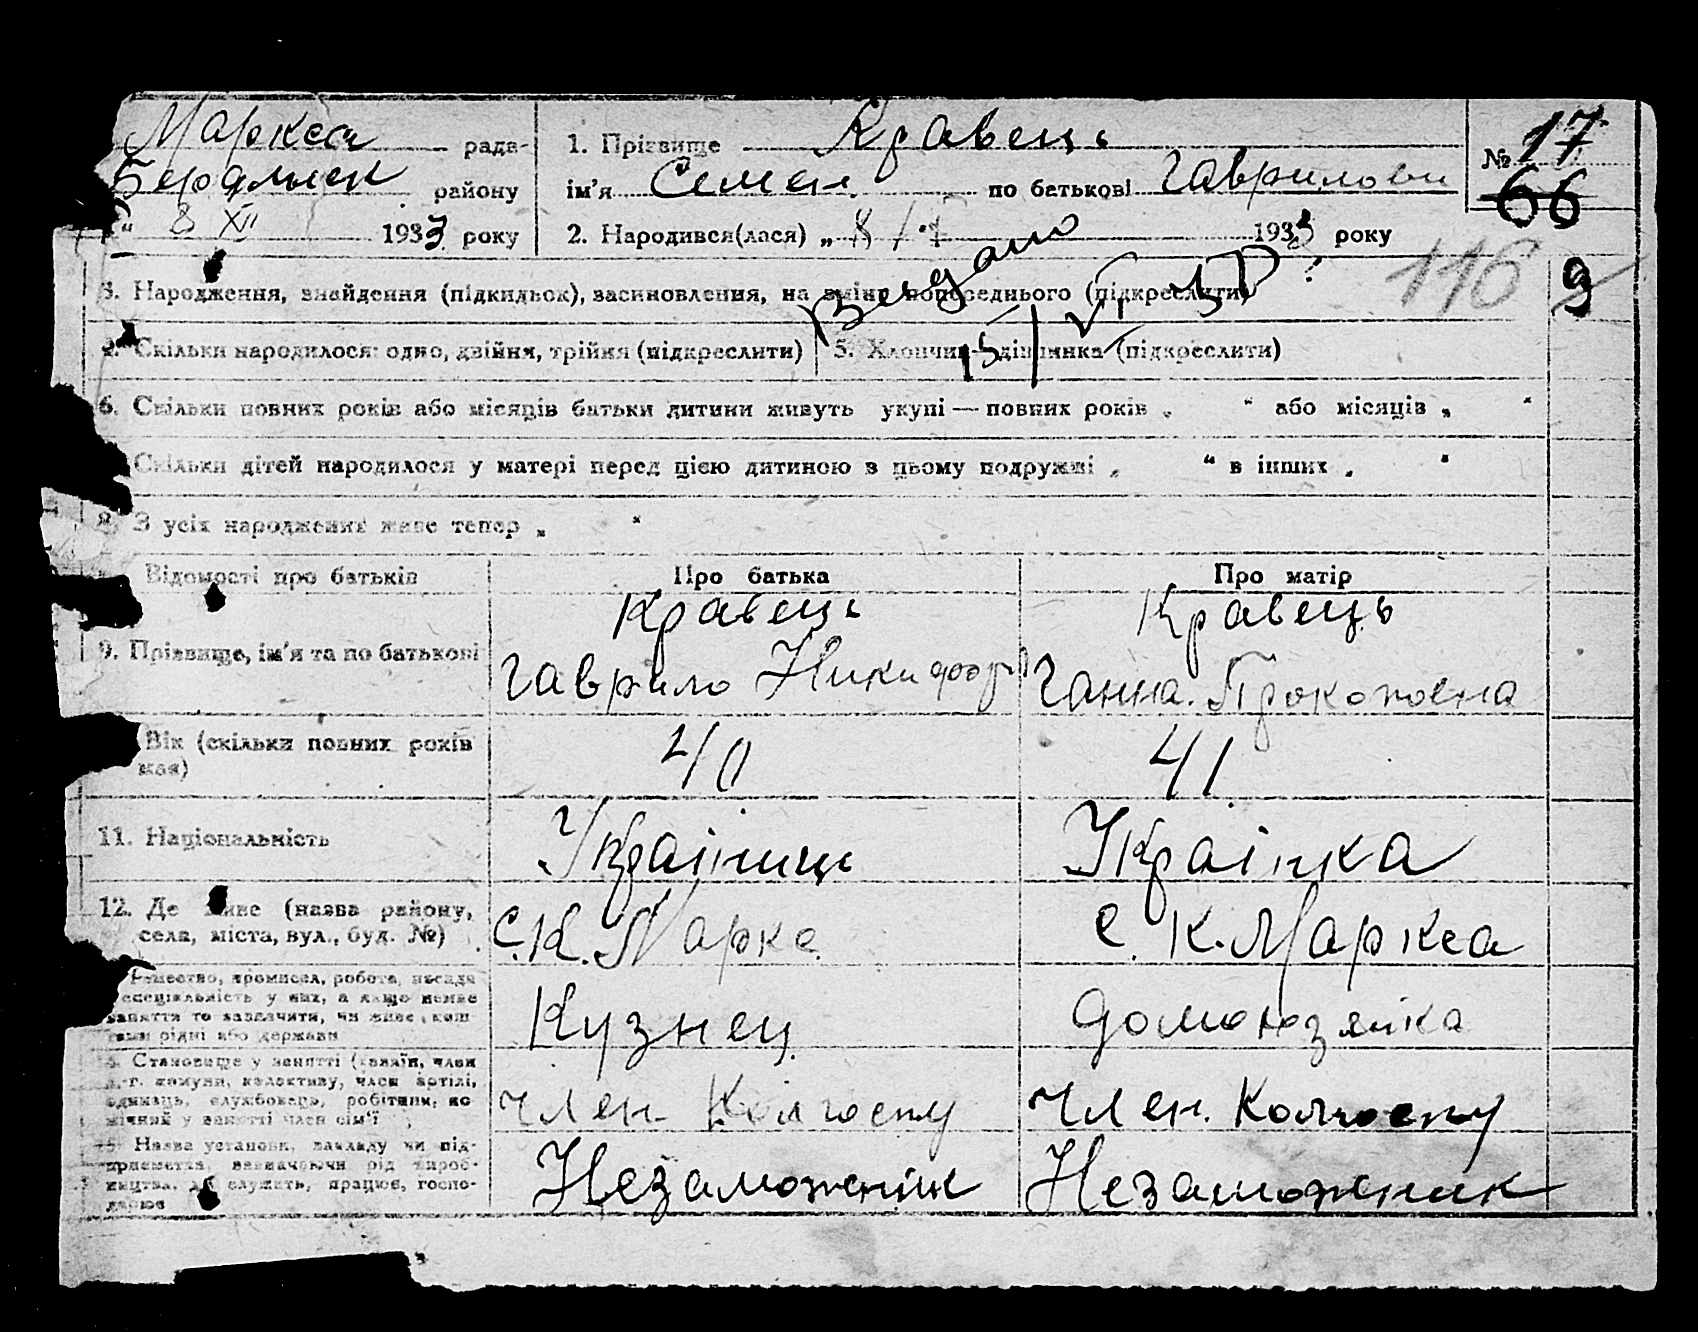 Маркса рада
Бердянск району
" 8 XII 1933 року
1. Прізвище Кравець
ім'я Семен по батькові Гаврилови
2. Народився(лася) „ 8 1933 року
№ 17
66
116 9
3. Народження, знайдення (підкидьок), засиновлення, на зміну попереднього (підкреслити)
Видано
4. Скільки народилося: одно, двійня, трійня (підкреслити) 5. Хлопчик—дівчинка (підкреслити)
6. Скільки повних років або місяців батьки дитини живуть укупі — повних років „ “ або місяців „ “
Скільки дітей народилося у матері перед цією дитиною в цьому подружжі „ “ в інших „ “
8. З усіх народжених живе тепер „ “
Відомості про батьків Про батька Про матір
9. Прізвище, ім'я та по батькові
Кравець Кравець
Гаврило Никифор Ганна Прокоповна
Вік (скільки повних років
має)
40 41
11. Національність Українець Українка
12. Де живе (назва району,
села, міста, вул., буд. №)
с. К. Маркс с. К. Маркса
Ремество, промисел, робота, посада
спеціяльність у них, а якщо немає
заняття то зазначити, чи живе кош-
тами рідні або держави
Кузнец домохозяйка
Становище у занятті (хазяїн, член
с.-г. комуни, колективу, член артілі,
одинець, службовець, робітник, по-
мічний у занятті член сім'ї
член Колгоспу член. Колгоспу
Назва установи, закладу чи під-
приємства, зазначаючи рід вироб-
ництва, де служить, працює, госпо-
дарює
Незаможник Незаможник